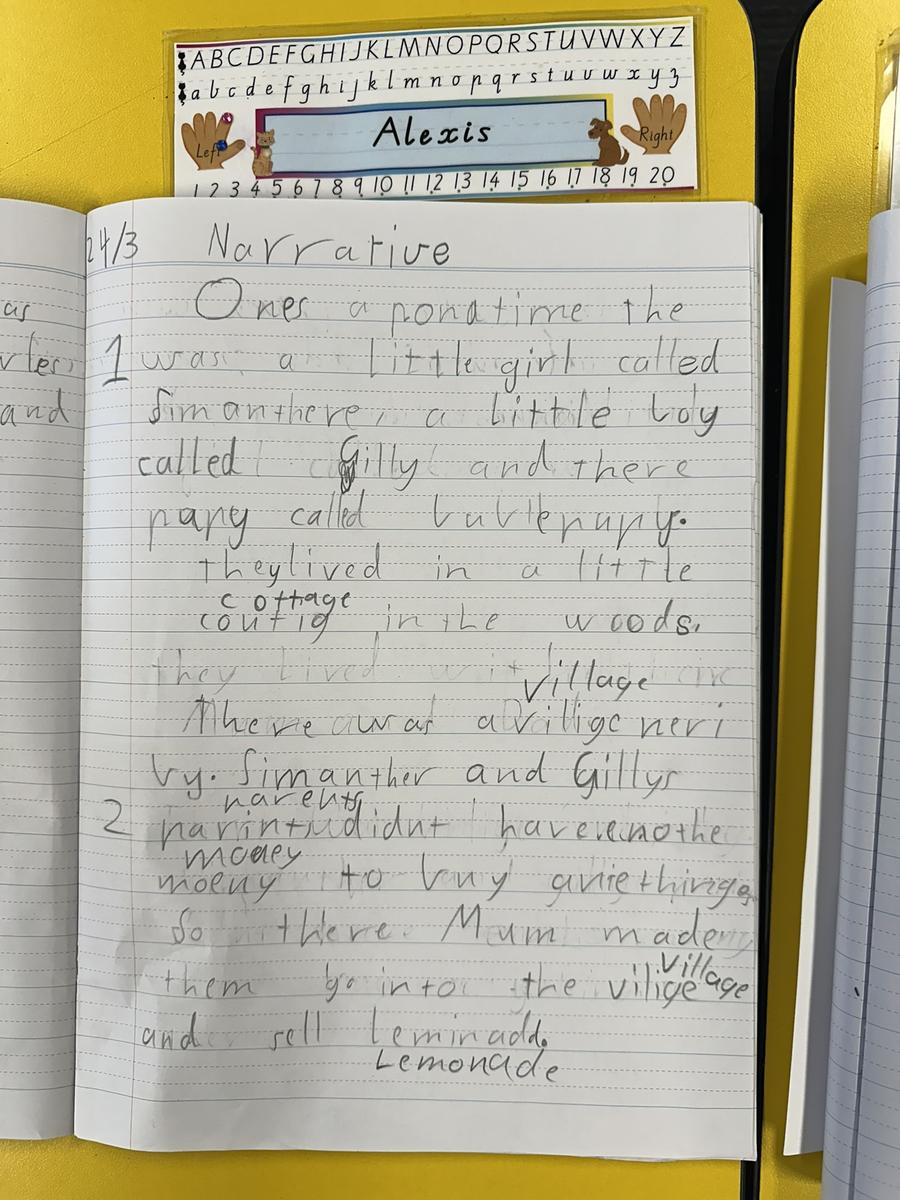 ABCDEFGHIJKLMNOPQRSTUVWXYZ
abcdefghijklmnopqrstuvwxyz
Left Alexis Right
1 2 3 4 5 6 7 8 9 10 11 12 13 14 15 16 17 18 19 20
24/3 Narrative
Ones a ponatime the
1 was a little girl called
Simanthere, a little boy
called Gilly and there
papy called
they lived in a little
cottage
coutig in the woods.
they lived
village
There was a villige neri
by. Simanther and Gillys
parents
2 parints didnt have enothe
money
moeny to buy aniethinge.
So there Mum made
village
them go into the vilige
and sell leminadd.
Lemonade
as
and